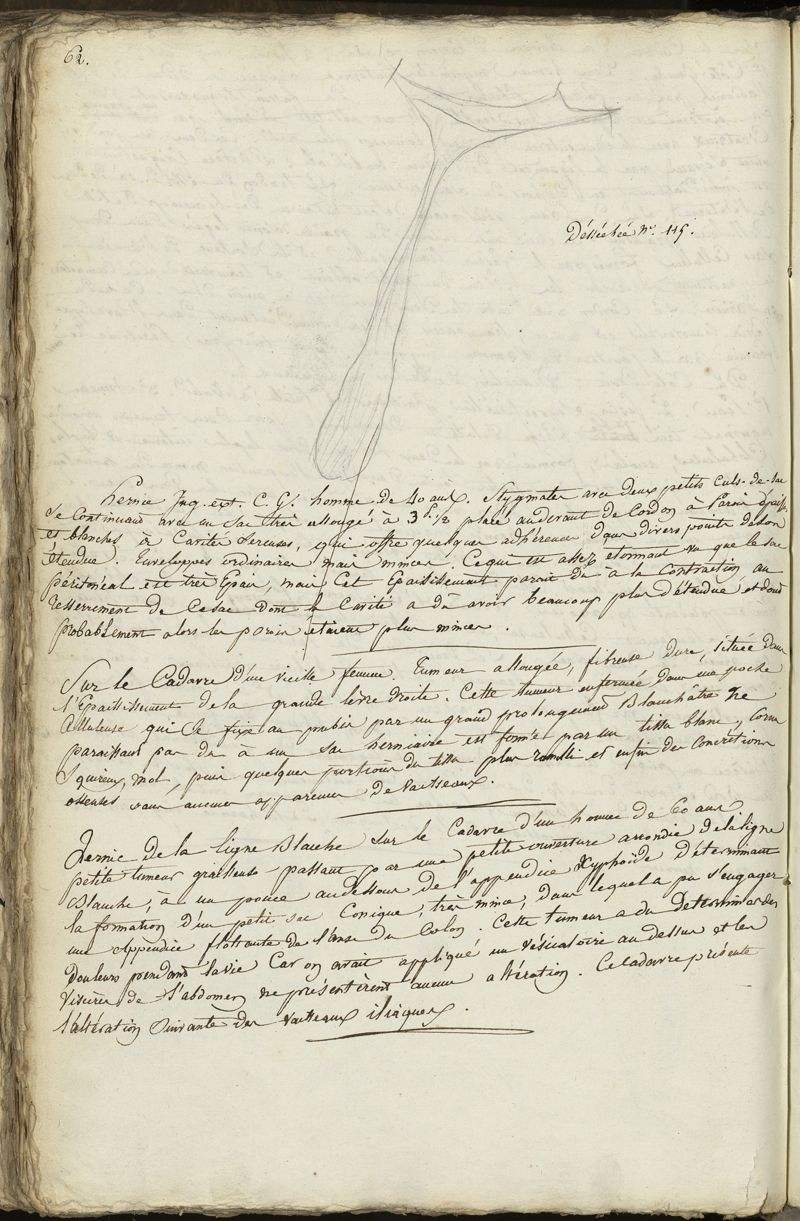 62.
Désséchée No. 115.
hernie Ing. ext. C. G. homme de 40 aux. Stygmates avec deux petits Culs-de-sac
se Continuant avec un Sac très allongé à 3 ½ placé audevant du Cordon à Parois épaiss.
et blanches à Cavité Séreuse, qui offre quelques adhérences dans divers points de son
étendue. Enveloppes ordinaires mais minces. Ce qui est assez etonnant vu que le sac
péritonéal est très Epais, mais Cet Epaississement parait du à la Contraction au
resserrement de Ce sac dont la Cavité a dû avoir beaucoup plus d'étendue et dont
probablement alors les parois étaient plus minces.
Sur le Cadavre d'une vieille femme. Tumeur allongée, fibreuse dure, située dans
l'Epaississement de la grande lèvre droite. Cette tumeur enfermée dans une poche
Celluleuse qui se fixe au pubis par un grand prolongement Blanchâtre ne
paraissant pas du à un Sac herniaire est formée par un tissu blanc, Corné
Squireux, mol, puis quelques portions du tissu plus ramolli et enfin des Concretions
osseuses sans aucune apparence de Vaisseaux.
Hernie de la ligne Blanche sur le Cadavre d'un homme de 60 aux
petite tumeur graisseuse passant par une petite ouverture arrondie de la ligne
Blanche, à un pouce audessous de l'appendice Xyphoïde Déterminant
la formation d'un petit sac Conique, très mince, dans lequel a pu s'engager
une Appendice flottante de l'anse du Colon. Cette tumeur a du Determiner des
Douleurs pendant la vie Car on avait appliqué un vésicatoire au dessus et les
Viscères de l'abdomen ne présentèrent aucune altération. Ce Cadavre présente
l'altération Suivante des Vaisseaux iliaques.